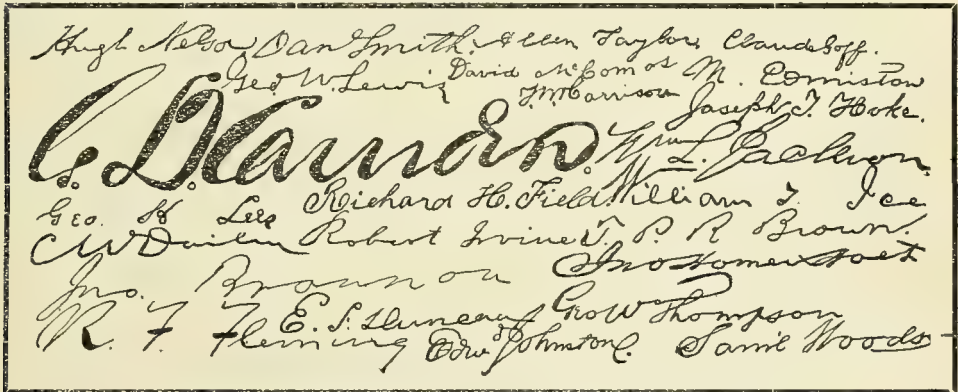 Hugh Nelson, Dan Smith. Allen Taylor, Claude Goff.
Geo W. Lewis David McComas M. Edmiston
T. M. Harrison Joseph T. Hoke.
G. D. Camden. Wm L. Jackson.
Geo. H Lee Richard H. Field William T. Ice
C W Dailey Robert Irvine T. P. R Brown.
Jno. Brannon Jno Homer Hoet
R. F. Fleming E. S. Duncan Geo W Thompson
Edwd Johnston. Saml Woods